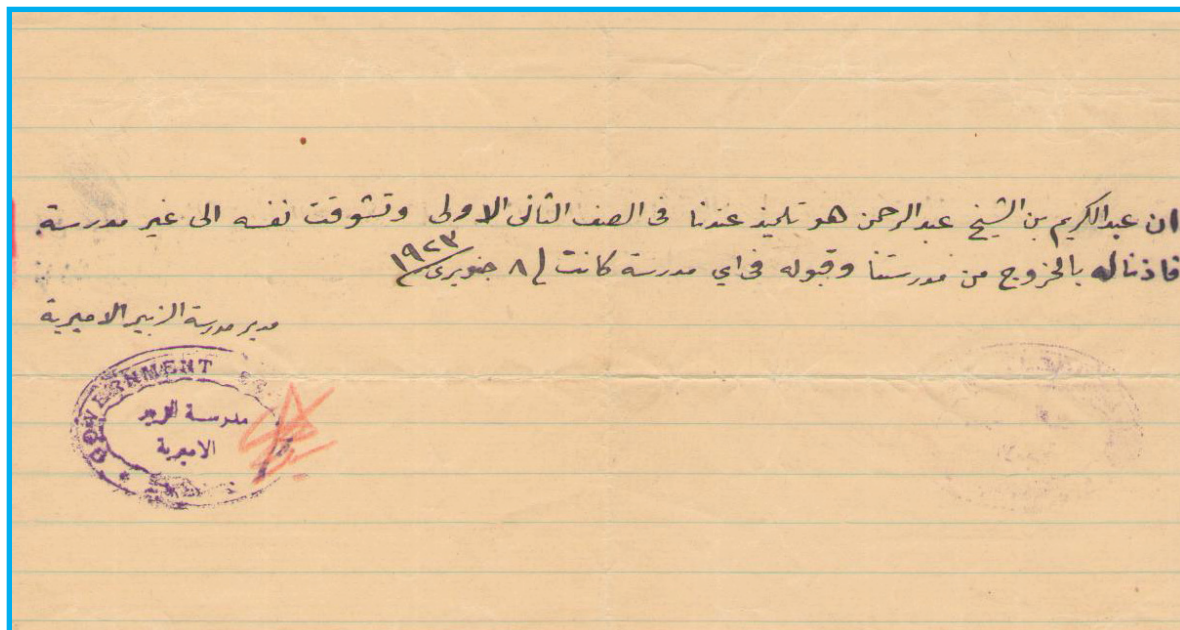 ان عبدالكريم بن الشيخ عبدالرحمن هو تلميذ عندنا فى الصف الثانى الاولى وتشوقت نفسه الى غير مدرسة
فاذناله بالخروج من مدرستنا وقبوله فى اي مدرسة كانت ٨ جنويرى ١٩٢٣
مدير مدرسة الزبير الاميرية
GOVERNMENT
مدرسة الزبير
الاميرية